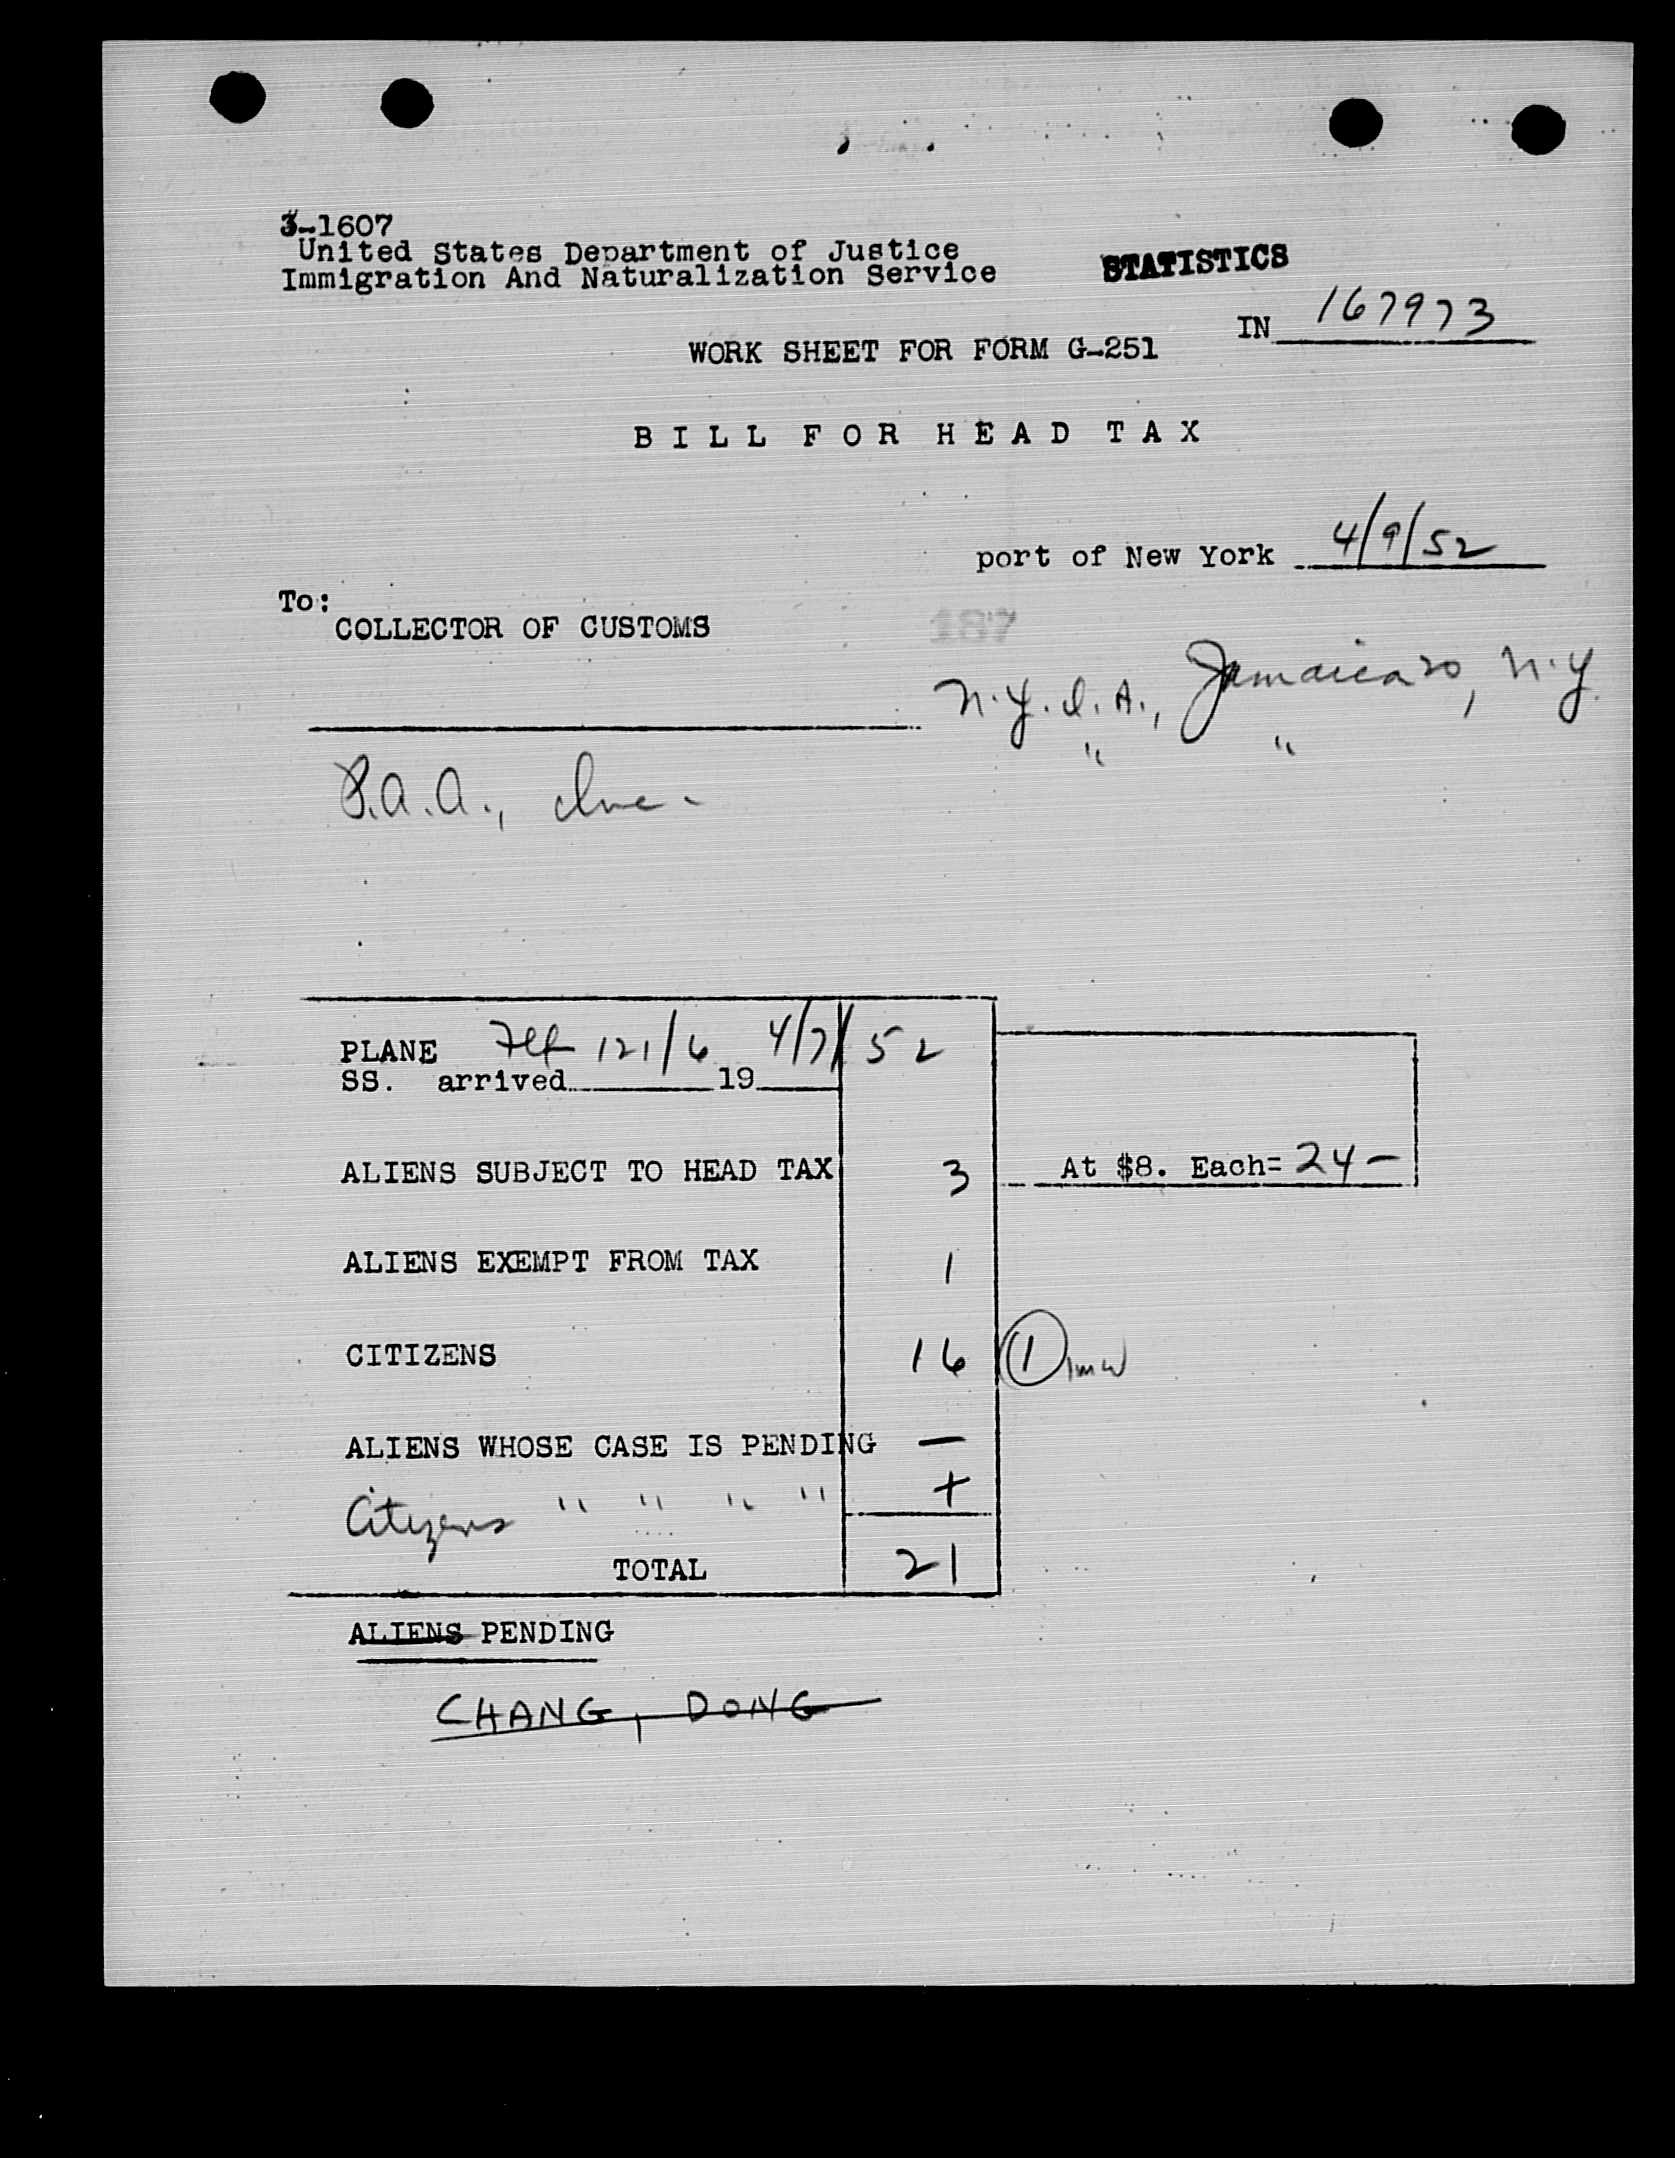 3-1607
United States Department of Justice
Immigration And Naturalization Service
STATISTICS
IN 167973
WORK SHEET FOR FORM G-251
BILL FOR HEAD TAX
port of New York 4/9/52
To:
COLLECTOR OF CUSTOMS
187
N.Y.I.A., Jamaica 30, N.Y.
" "
P.A.A., Inc.
PLANE Flt 121/6 4/7/52
SS. arrived 19
ALIENS SUBJECT TO HEAD TAX 3 At $8. Each= 24-
ALIENS EXEMPT FROM TAX 1
CITIZENS 16 1
ALIENS WHOSE CASE IS PENDING —
Citizens " " " " +
TOTAL 21
ALIENS PENDING
CHANG, DONG